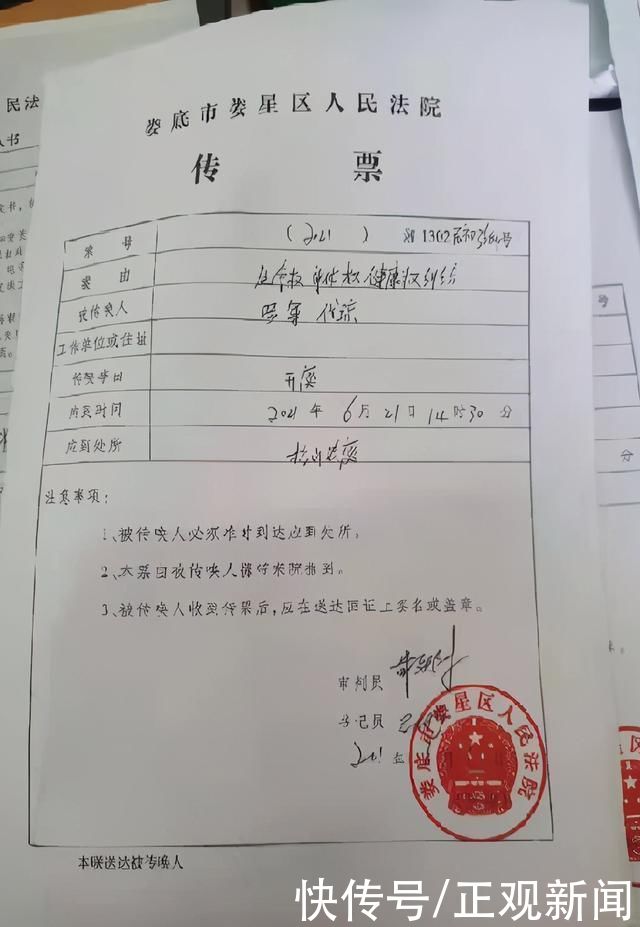 娄底市娄星区人民法院
传 票
案 号 (2021) 湘1302民初 号
案 由 生命权身体权健康权纠纷
被传唤人
工作单位或住址
传唤事由 开庭
传唤时间 2021年6月21日14时30分
应到处所
注意事项：
1、被传唤人必须准时到达应到处所。
2、本票由被传唤人携带来院报到。
3、被传唤人收到传票后，应在送达回证上签名或盖章。
审判员
书记员
2021年
娄底市娄星区人民法院
本联送达被传唤人
民法
书
号
分
快传号/正观新闻